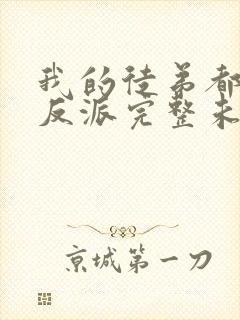 我的徒弟都
反派完整未
京城第一刀